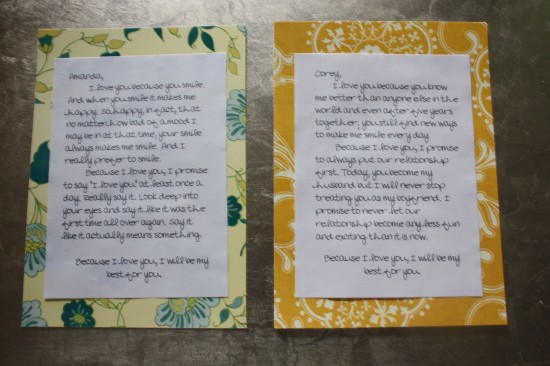 Amanda,
I love you because you smile.
And when you smile it makes me
happy. So happy, in fact, that
no matter how bad of a mood I
may be in at that time, your smile
always makes me smile. And I
really prefer to smile.
Because I love you, I promise
to say "I love you" at least once a
day. Really say it. Look deep into
your eyes and say it like it was the
first time all over again. Say it
like it actually means something.
Because I love you, I will be my
best for you.
Corey,
I love you because you know
me better than anyone else in the
world and even after five years
together, you still find new ways
to make me smile every day.
Because I love you, I promise
to always put our relationship
first. Today, you become my
husband but I will never stop
treating you as my boyfriend. I
promise to never let our
relationship become any less fun
and exciting than it is now.
Because I love you, I will be my
best for you.